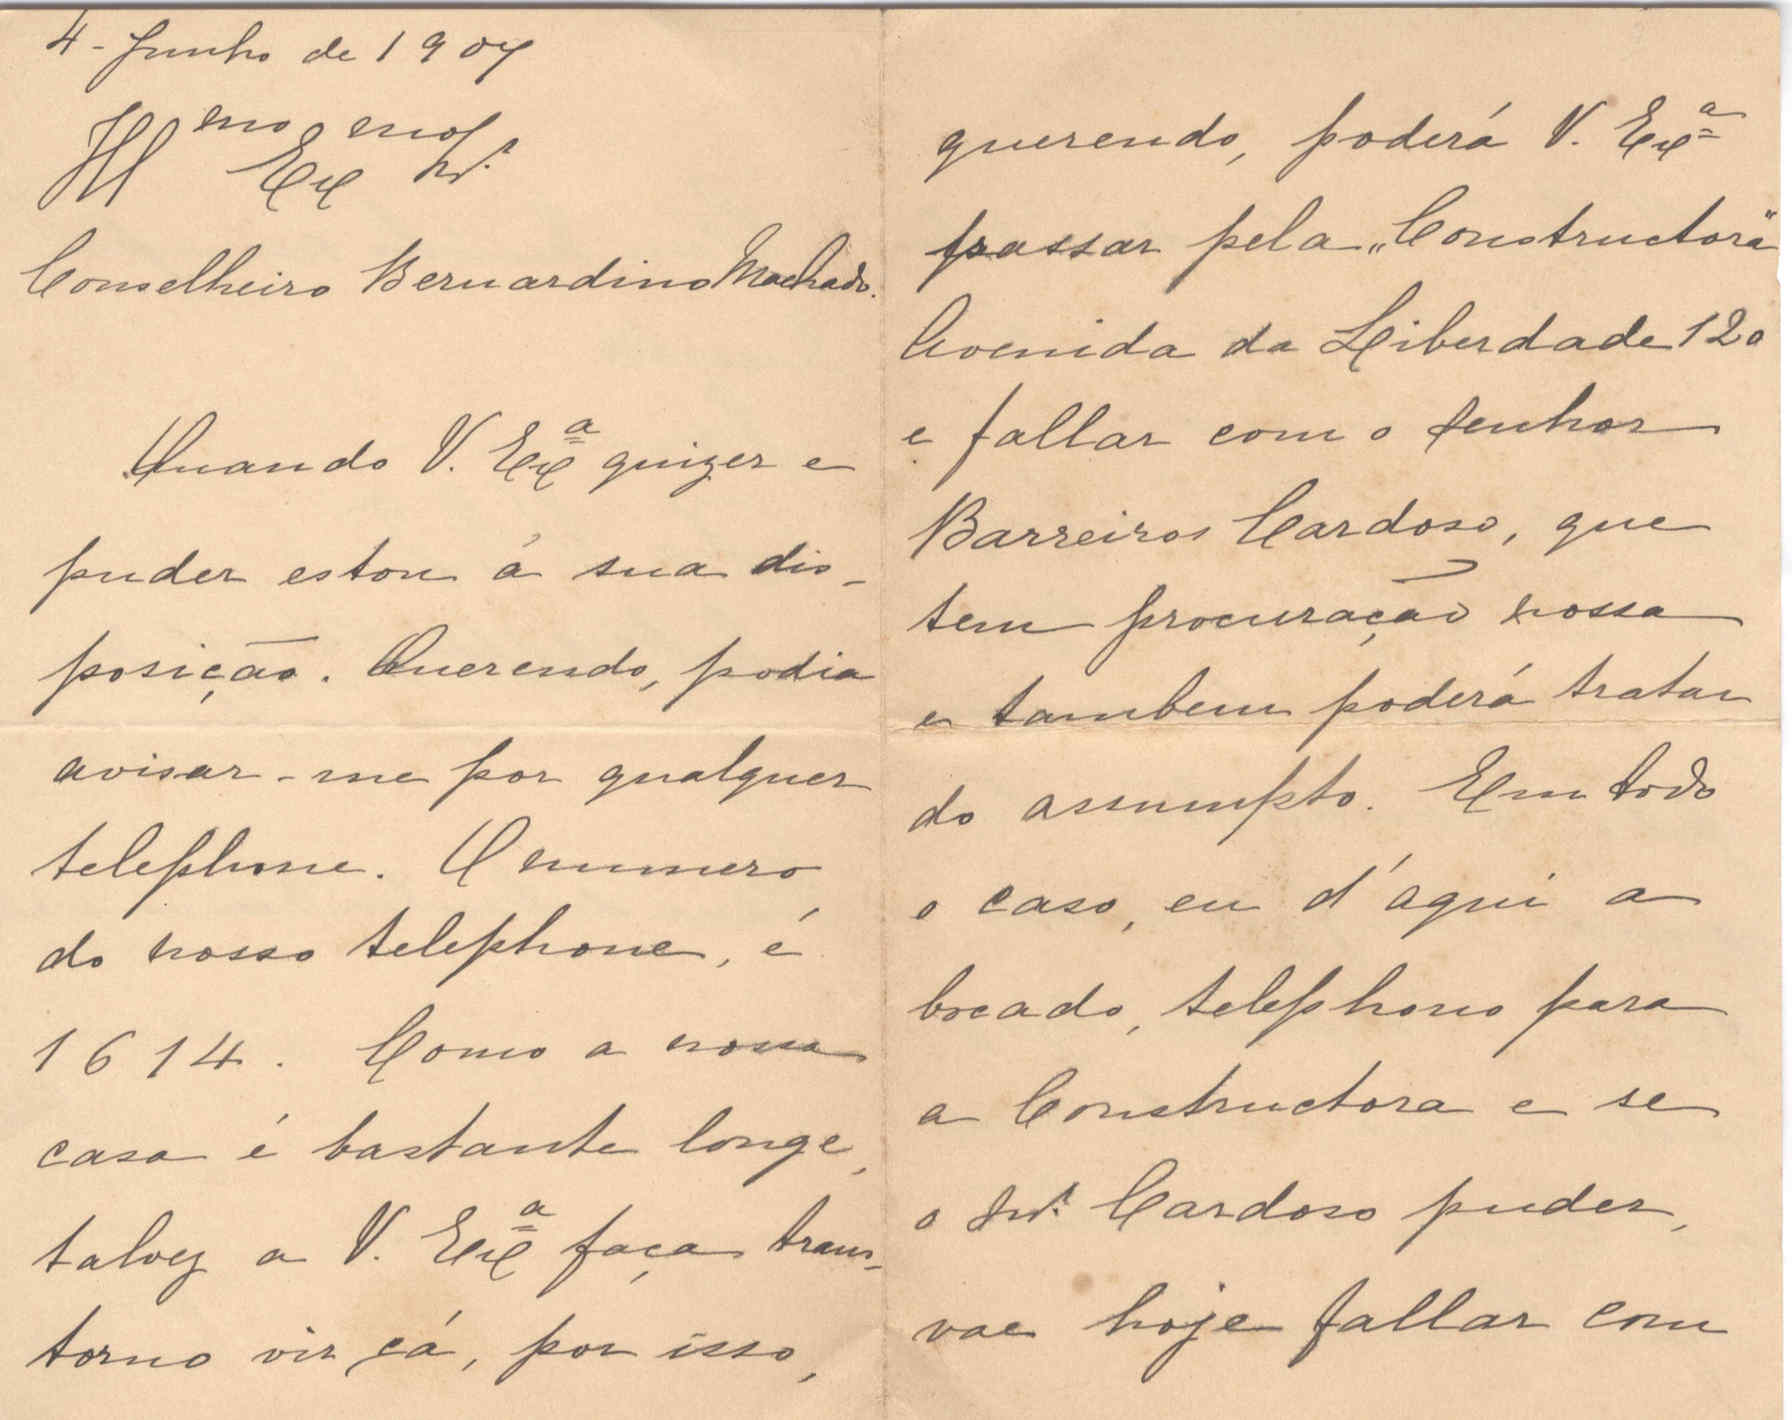 4 - Junho de 1907
Ill^mo Ex^mo Snr.
Conselheiro Bernardino Machado.
Quando V. Exª quizer e
puder estou á sua dis-
posição. Querendo, podia
avisar-me por qualquer
telephone. O numero
do nosso telephone, é
1614. Como a nossa
casa é bastante longe,
talvez a V. Exª faça trans-
torno vir cá, por isso,
querendo, poderá V. Exª
passar pela „Constructora"
Avenida da Liberdade 120
e fallar com o senhor
Barreiros Cardoso, que
tem procuração nossa
e tambem poderá tratar
do assumpto. Em todo
o caso, eu d'aqui a
bocado, telephono para
a Constructora e se
o Snr. Cardoso puder,
vae hoje fallar com